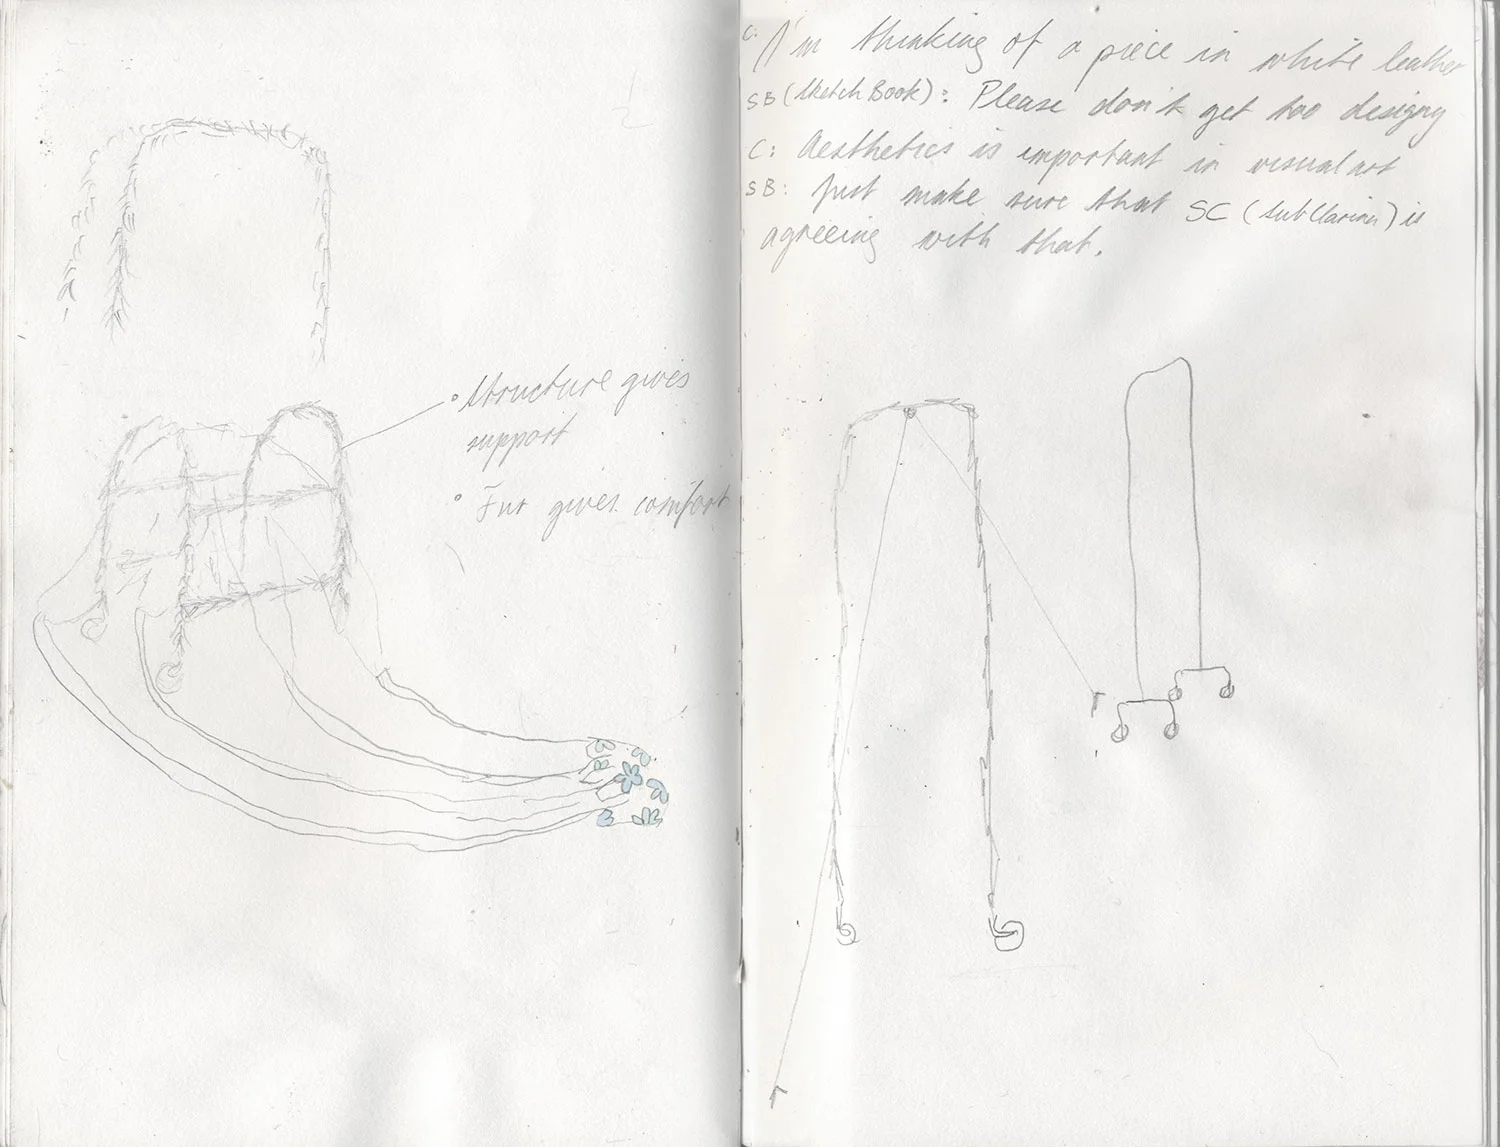 • Structure gives
support
• Fur gives comfort
C: I'm thinking of a piece in white leather
SB (Sketch Book): Please don't get too designy
C: Aesthetics is important in visual art
SB: Just make sure that SC (subClarina) is
agreeing with that.